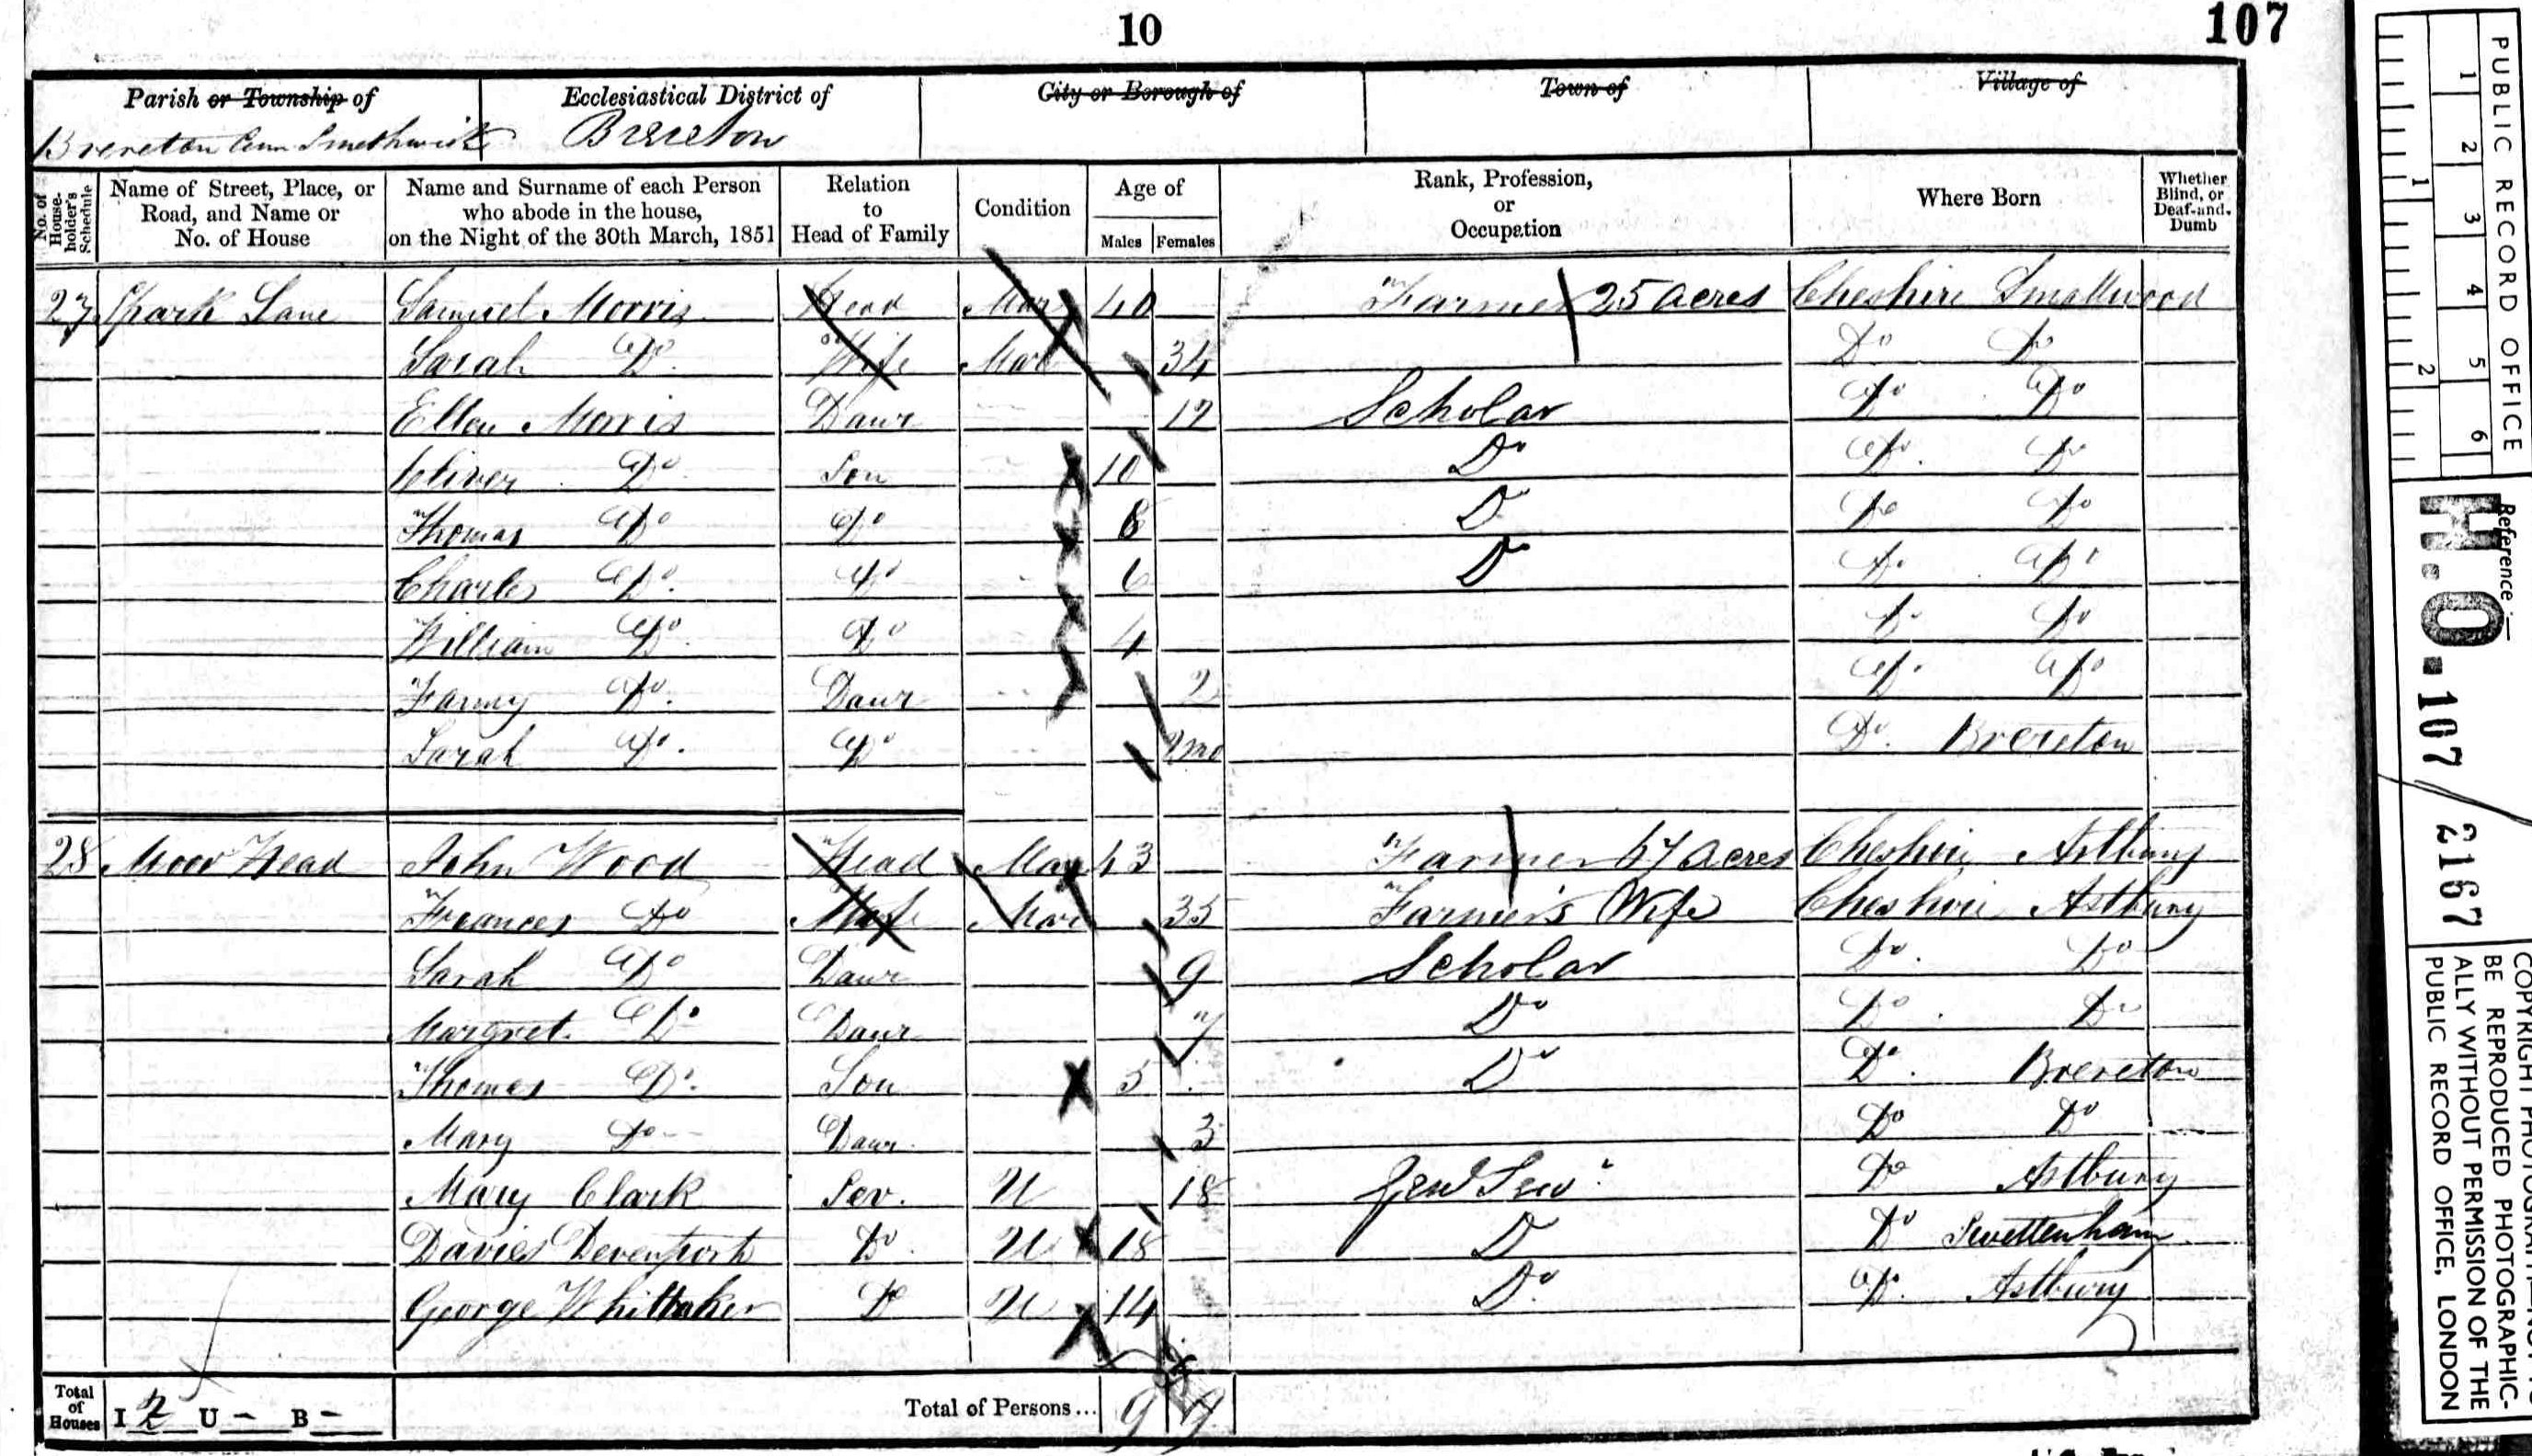 10
107
Parish or Township of
Ecclesiastical District of
City or Borough of
Town of
Village of
Brereton Cum Smethwick
Brereton
No. of House-holder's Schedule
Name of Street, Place, or Road, and Name or No. of House
Name and Surname of each Person who abode in the house, on the Night of the 30th March, 1851
Relation to Head of Family
Condition
Age of
Males Females
Rank, Profession, or Occupation
Where Born
Whether Blind, or Deaf-and-Dumb
27 Spark Lane Samuel Morris Head Mar 40 Farmer 25 acres Cheshire Smallwood
Sarah Do Wife Mar 34 Do Do
Ellen Morris Daur Scholar Do Do
Oliver Do Son 10 Do Do Do
Thomas Do Do 8 Do Do Do
Charles Do Do 6 Do Do Do
William Do Do 4 Do Do
Fanny Do Daur 2 Do Do
Sarah Do Do 2mo Do Brereton
28 Moor Head John Wood Head Mar 43 Farmer acres Cheshire Astbury
Frances Do Wife Mar 35 Farmer's Wife Cheshire Astbury
Sarah Do Daur 9 Scholar Do Do
Margret Do Daur 7 Do Do Do
Thomas Do Son 5 Do Do Brereton
Mary Do Daur 3 Do Do
Mary Clark Ser. U 18 Genl Serv Do Astbury
Davies Devenport Do U 18 Do Do Swettenham
George Whittaker Do U 14 Do Do Astbury
Total of Houses I 2 U - B -
Total of Persons... 9 9
PUBLIC RECORD OFFICE
1 2 3 4 5 6
1 2
Reference:—
H.O. 107 / 2167
PUBLIC RECORD OFFICE, LONDON
ALLY WITHOUT PERMISSION OF THE
BE REPRODUCED PHOTOGRAPHIC-